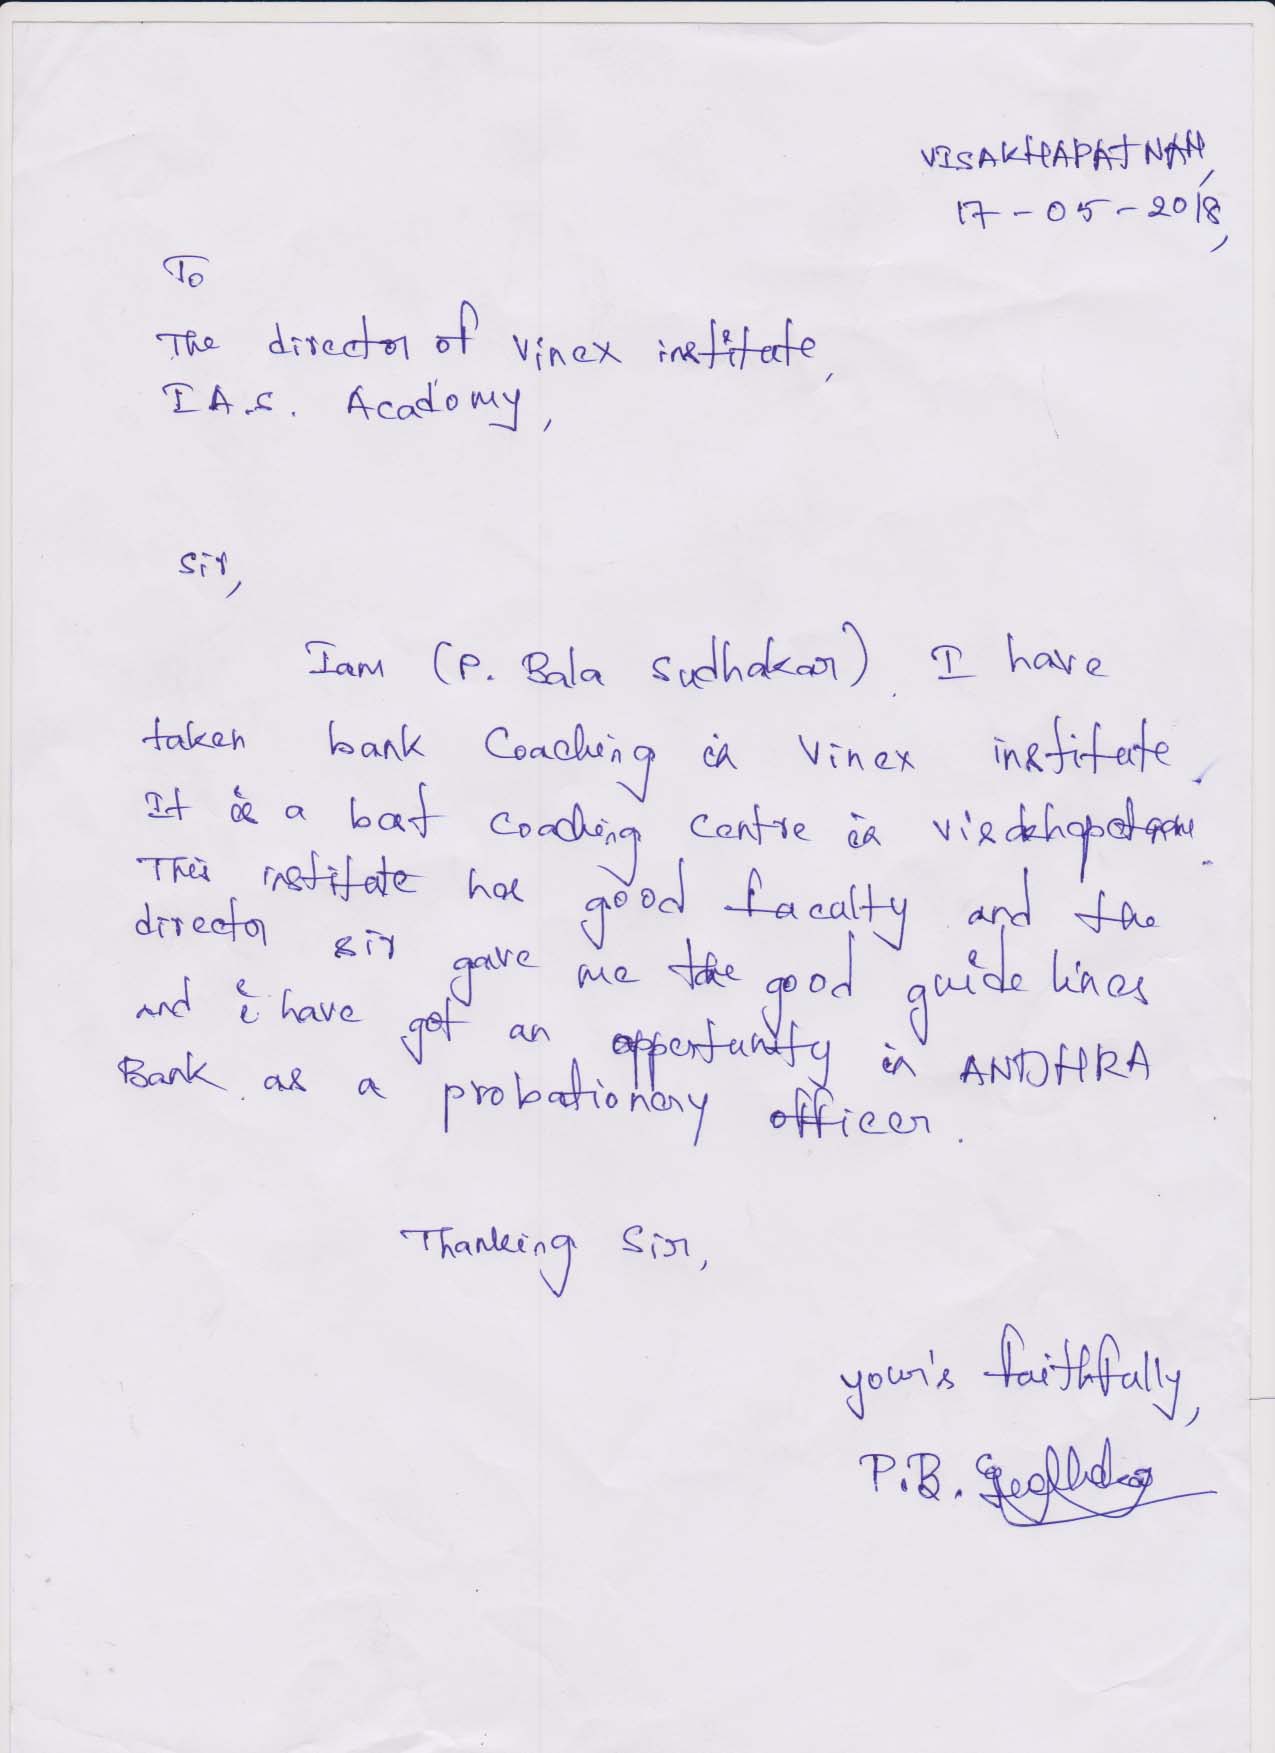 VISAKHAPATNAM,
17-05-2018,
To
The director of Vinex institute,
I.A.S. Academy,
Sir,
Iam (P. Bala Sudhakar). I have
taken bank Coaching in Vinex institute.
It is a best coaching centre in visakhapatnam.
This institute has good faculty and the
director sir gave me the good guide lines
and i have got an oppertunity in ANDHRA
Bank as a probationary officer.
Thanking Sir,
your's faithfully,
P.B. Sudhakar